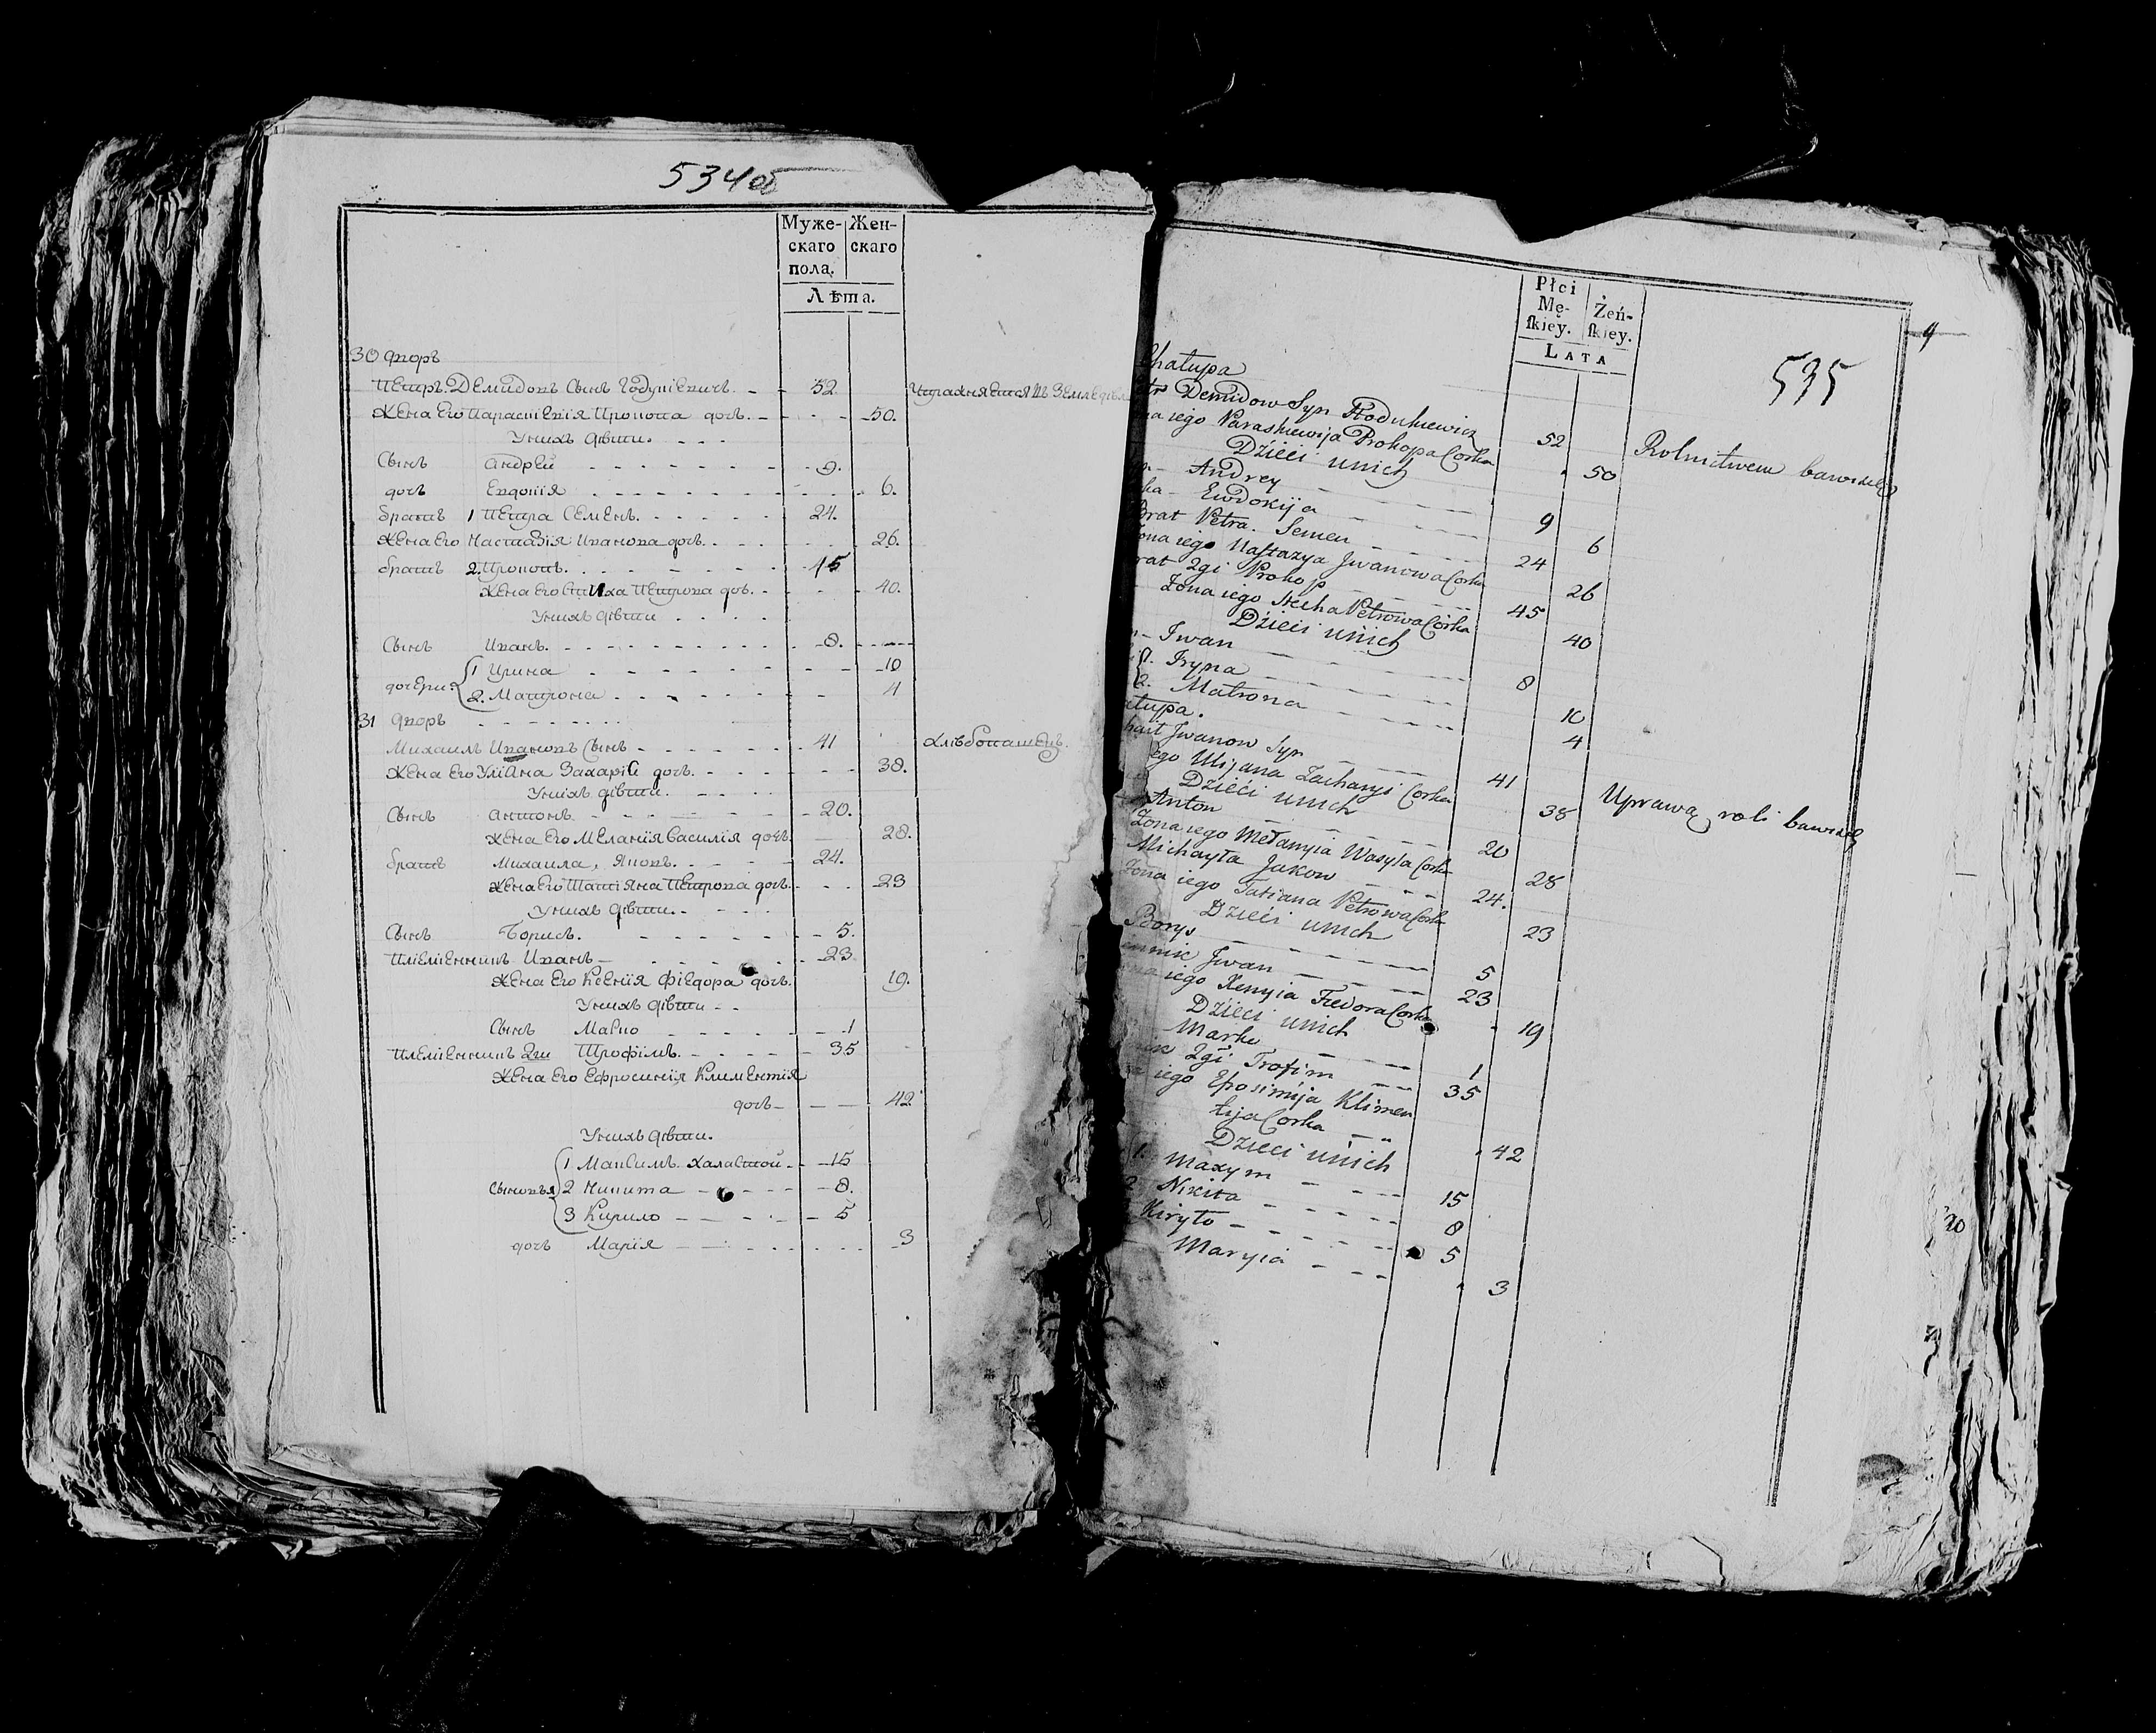 534об
Муже- Жен-
скаго скаго
пола.
Лѣта.
30 дворъ
Петръ Демидовъ Сынъ Годункевичъ 52
Жена Его Параскевія Прокопа дочь 50.
Унихъ дѣти.
Сынъ Андрей 9.
дочь Евдокія 6.
братъ 1 Петра Семенъ. 24.
Жена Его Настазія Иванова дочь. 26.
братъ 2. Прокопъ. 45
Жена Его Стиха Петрова доч. 40.
Унихъ дѣти
Сынъ Иванъ. 8.
дочери 1 Ирина 10
2. Матрона 4
31 дворъ
Михаилъ Ивановъ Сынъ 41 Хлѣбопашецъ.
Жена Его Уліана Захарія дочь. 38.
Унихъ дѣти.
Сынъ Антонъ 20.
Жена Его Меланія Василія дочь. 28.
братъ Михаила, Яковъ. 24.
Жена Его Татіяна Петрова дочь. 23
Унихъ дѣти.
Сынъ Борисъ. 5.
Племенникъ Иванъ 23.
Жена Его Ксенія Федора дочь. 19.
Унихъ дѣти
Сынъ Марко 1
Племенникъ 2ій Трофімъ. 35
Жена Его Ефросинія Климентія
дочь 42.
Унихъ дѣти.
1 Максимъ Халастой 15
Сыновья 2 Никита 8.
3 Кирило 5
дочь Марія 3
Płci Żeń-
Mę- ſkiey.
ſkiey.
LATA
4
535
Chałupa
Demidow Syn Hodunkiewicz 52 Rolnictwem bawi się
iego Paraskiewija Prokopa Corka 50
Dzieci unich
Andrey 9
Ewdokija 6
Brat Petra. Semen 24
iego Nastazya Jwanowa Corka 26
2gi Prokop 45
Żona iego Stecha Petrowa Córka 40
Dzieci unich
Jwan 8
1. Iryna 10
2. Matrona 4
Jwanow Syn 41 Uprawą roli bawi się
Ulijana Zacharyi Corka 38
Dzieci unich
Anton 20
Żona iego Mełanyia Wasyla Corka 28
Michayła Jakow 24.
Żona iego Tatiana Petrowa Corka 23
Dzieci unich
Borys 5
Jwan 23
iego Xenyia Fiedora Corka 19
Dzieci unich
Marko 1
2gi Trofim 35
iego Efrosimija Klimen
tija Corka 42
Dzieci unich
1. Maxym 15
2 Nikita 8
Kiryło 5
Maryia 3